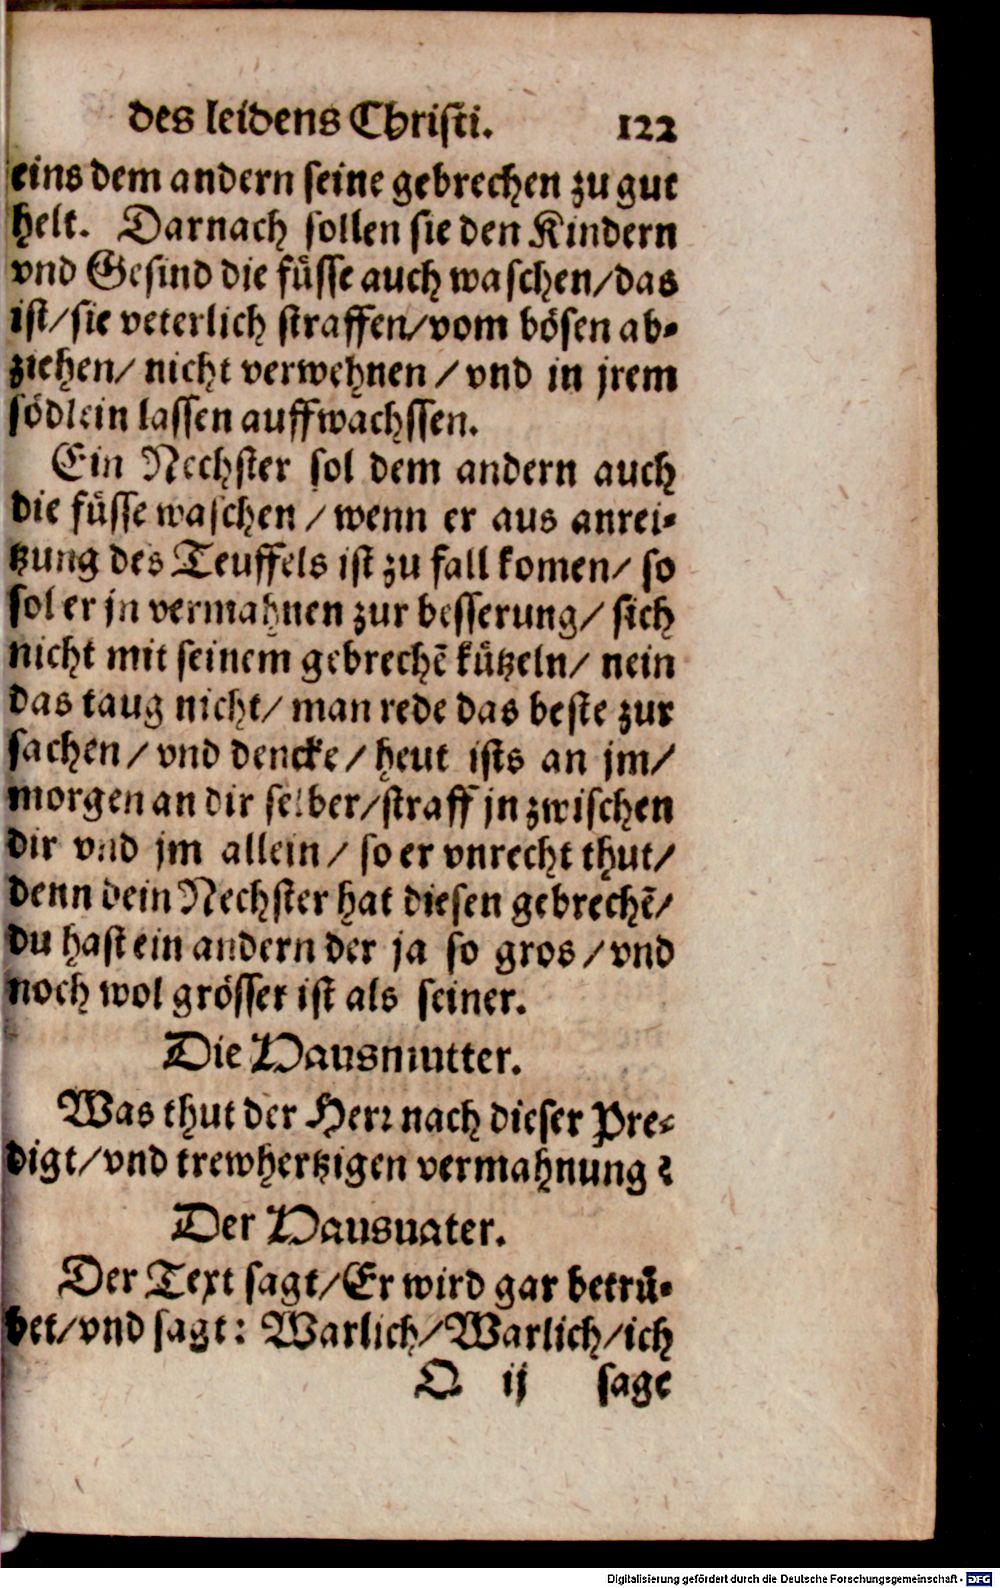 des leidens Christi. 122
eins dem andern seine gebrechen zu gut
helt. Darnach sollen sie den Kindern
vnd Gesind die füsse auch waschen/das
ist/sie veterlich straffen/vom bösen ab-
ziehen/ nicht verwehnen / vnd in jrem
södlein lassen auffwachssen.
Ein Nechster sol dem andern auch
die füsse waschen / wenn er aus anrei-
tzung des Teuffels ist zu fall komen/ so
sol er jn vermahnen zur besserung/ sich
nicht mit seinem gebrechē kützeln/ nein
das taug nicht/ man rede das beste zur
sachen / vnd dencke / heut ists an jm/
morgen an dir selber/straff jn zwischen
dir vnd jm allein / so er vnrecht thut/
denn dein Nechster hat diesen gebrechē/
du hast ein andern der ja so gros / vnd
noch wol grösser ist als seiner.
Die Hausmutter.
Was thut der Herr nach dieser Pre-
digt/vnd trewhertzigen vermahnung?
Der Hausuater.
Der Text sagt/Er wird gar betrü-
bet/vnd sagt: Warlich/Warlich/ich
O ij sage
Digitalisierung gefördert durch die Deutsche Forschungsgemeinschaft - DFG